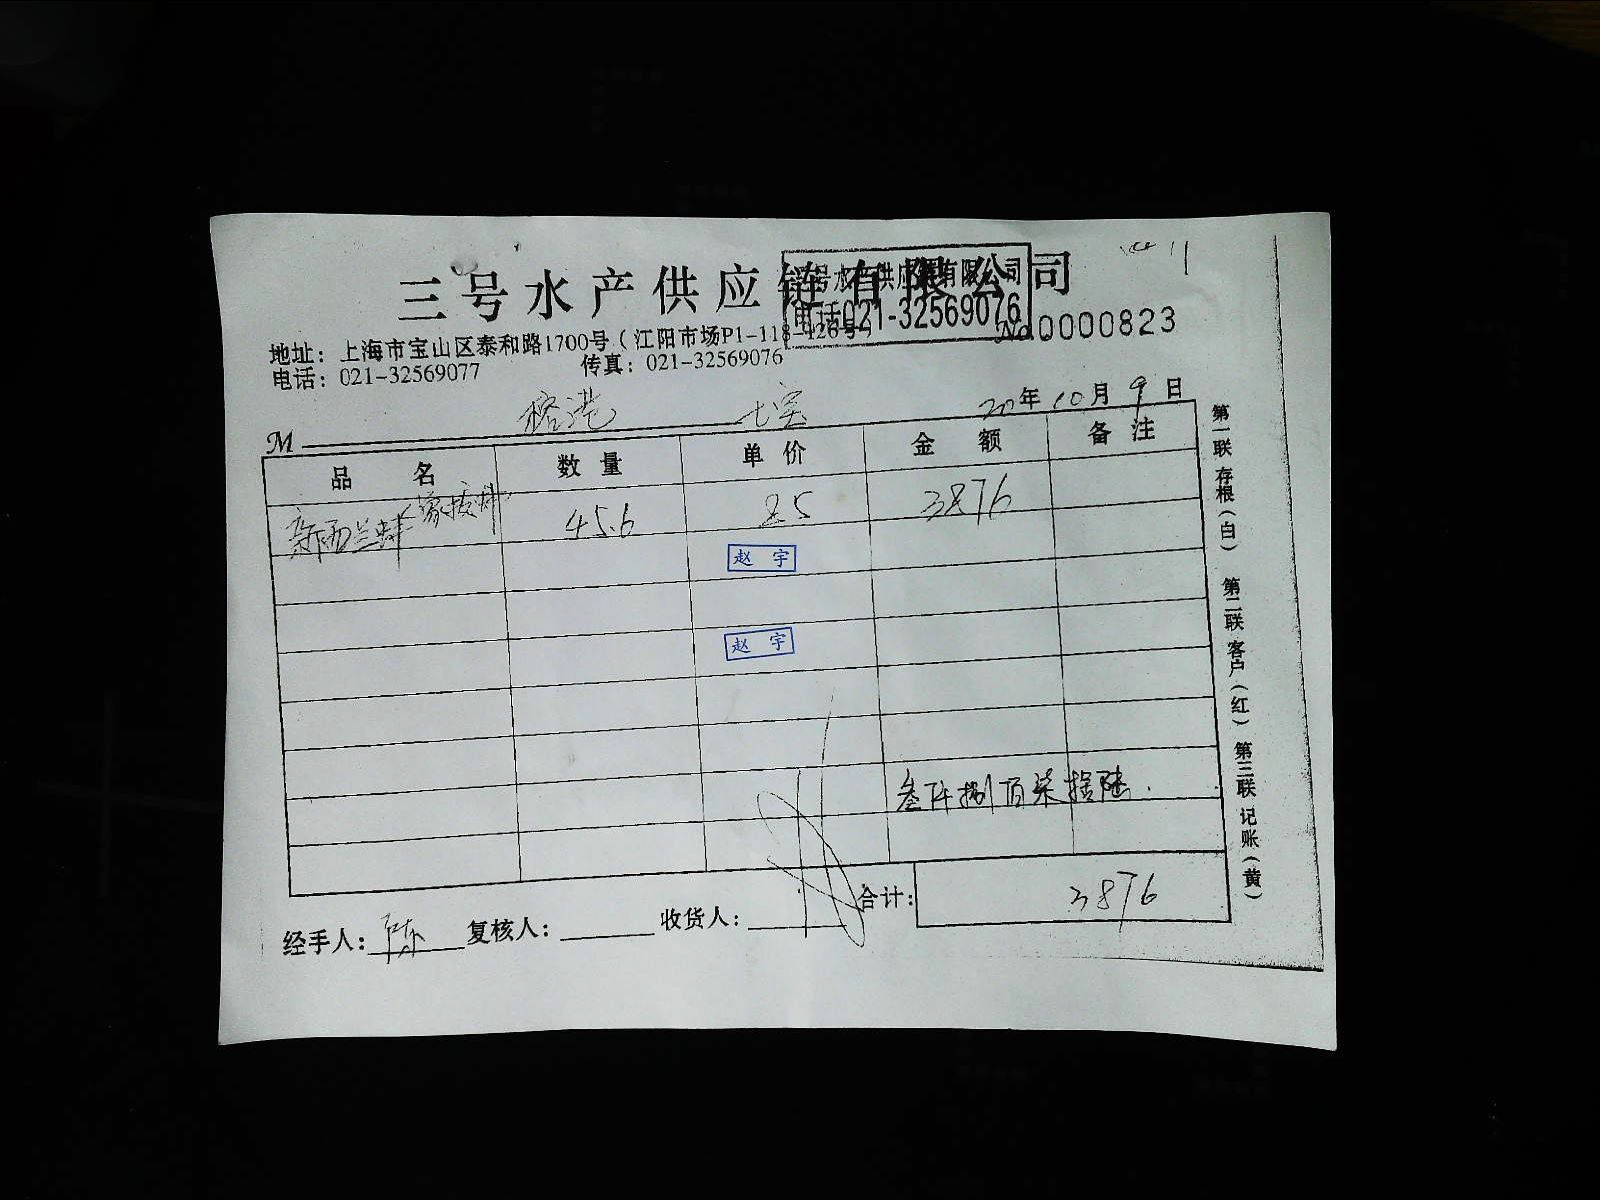 三号水产供应链有限公司
三号水产供应链有限公司
电话021-32569076
No.0000823
地址：上海市宝山区泰和路1700号（江阳市场P1-118-126号）
电话：021-32569077 传真：021-32569076
榕港 七宝 20年10月9日
M
品名 数量 单价 金额 备注
新西兰蚌(象拔蚌) 45.6 85 3876
赵宇
赵宇
叁仟捌百柒拾陆
合计：3876
经手人：陈 复核人： 收货人：
第一联存根（白） 第二联客户（红） 第三联记账（黄）